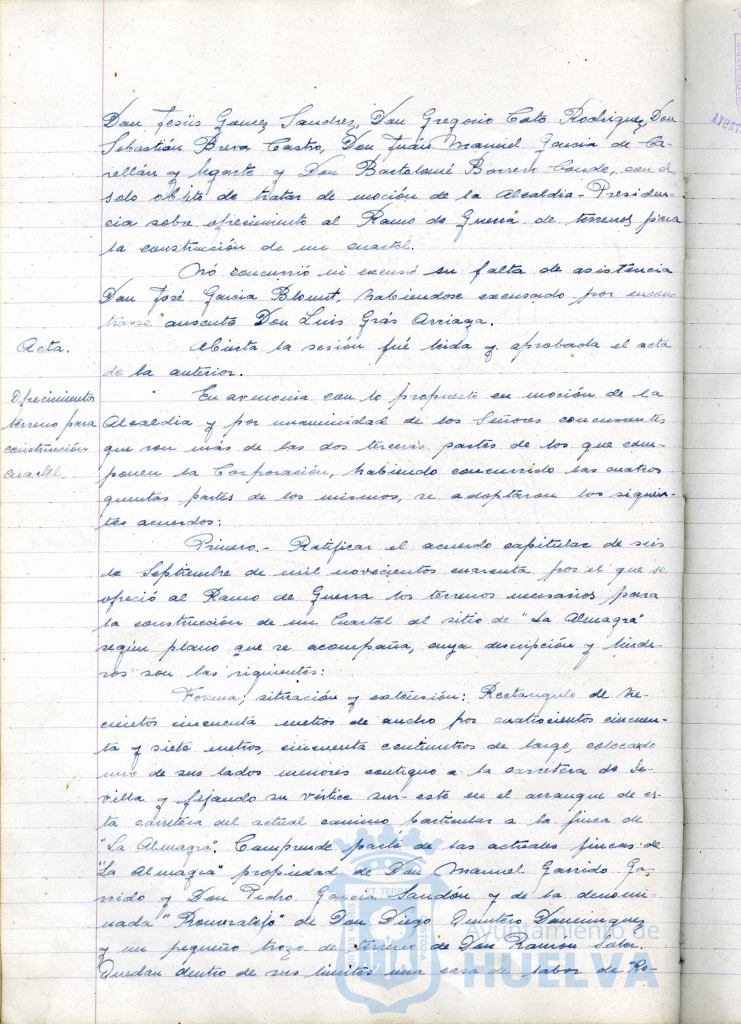 Don Jesús Gomez Sanchez, Don Gregorio Cato Rodriguez, Don
Sebastián Breva Castro, Don Juán Manuel Garcia de Ca-
rellán y Ugarte y Don Bartolomé Borrero Conde, con el
solo objeto de tratar de moción de la Alcaldia-Presiden-
cia sobre ofrecimiento al Ramo de Guerra de terrenos para
la construcción de un cuartel.
No concurrió ni excusó su falta de asistencia
Don José Garcia Blount, habiendose excusado por encon-
trarse ausente Don Luis Grás Arriaza.
Acta.
Abierta la sesión fué leida y aprobada el acta
de la anterior.
Ofrecimientos
terreno para
construcción
cuartel.
En armonia con lo propuesto en moción de la
Alcaldia y por unanimidad de los Señores concurrentes
que son más de las dos terceras partes de los que com-
ponen la Corporación, habiendo concurrido las cuatro
quintas partes de los mismos, se adoptaron los siguien-
tes acuerdos:
Primero.- Ratificar el acuerdo capitular de seis
de Septiembre de mil novecientos cuarenta por el que se
ofreció al Ramo de Guerra los terrenos necesarios para
la construcción de un Cuartel al sitio de "La Almagra"
según plano que se acompaña, cuya descripción y linde-
ros son las siguientes:
Forma, situación y extensión: Rectangulo de tre-
cientos cincuenta metros de ancho por cuatrocientos cincuen-
ta y siete metros, cincuenta centimetros de largo, colocando
uno de sus lados menores contiguo a la carretera de Se-
villa y fijando su vértice sur-este en el arranque de es-
ta carretera del actual camino particular a la finca de
"La Almagra". Comprende parte de las actuales fincas de
"La Almagra" propiedad de Don Manuel Garrido Ga-
rrido y Don Pedro Garcia Sandón y de la denomi-
nada "Romeralejo" de Don Diego Quintero Dominguez
y un pequeño trozo de terreno de Don Ramon Soler.
Quedan dentro de sus limites una casa de labor de "Ro-
Ayuntamiento de
HUELVA